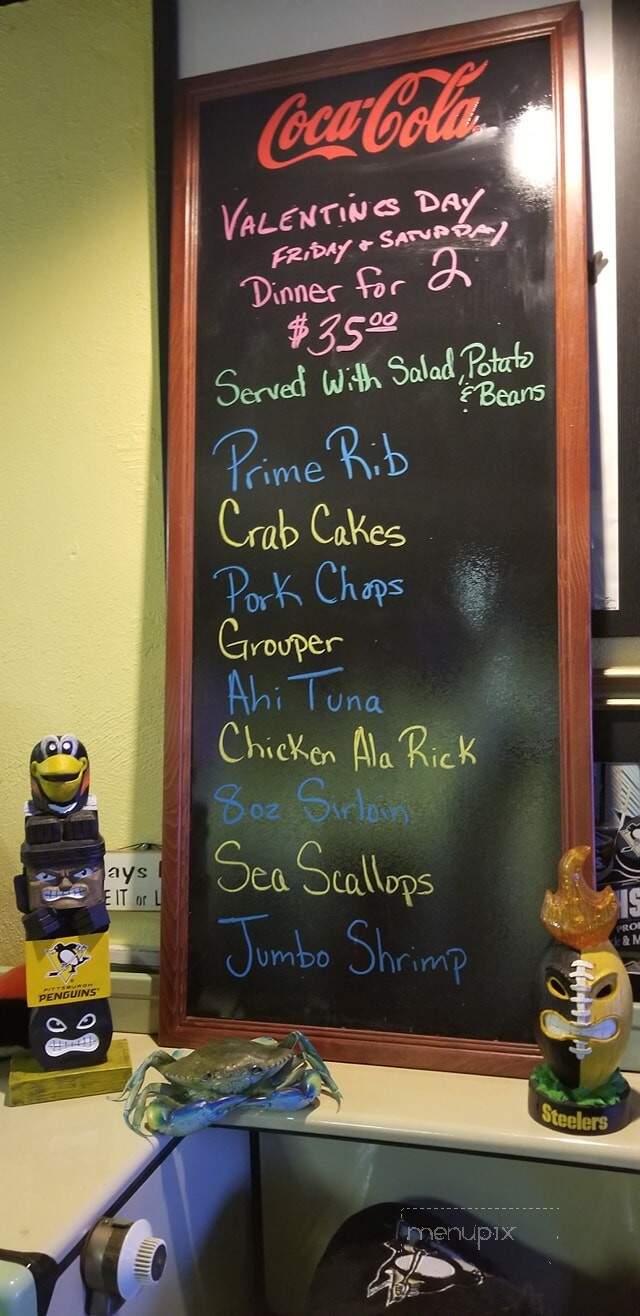 Coca-Cola
VALENTINES DAY
FRIDAY + SATURDAY
Dinner for 2
$35.00
Served With Salad, Potato
& Beans
Prime Rib
Crab Cakes
Pork Chops
Grouper
Ahi Tuna
Chicken Ala Rick
8oz Sirloin
Sea Scallops
Jumbo Shrimp
ays
E IT or L
PITTSBURGH
PENGUINS
Steelers
menupix